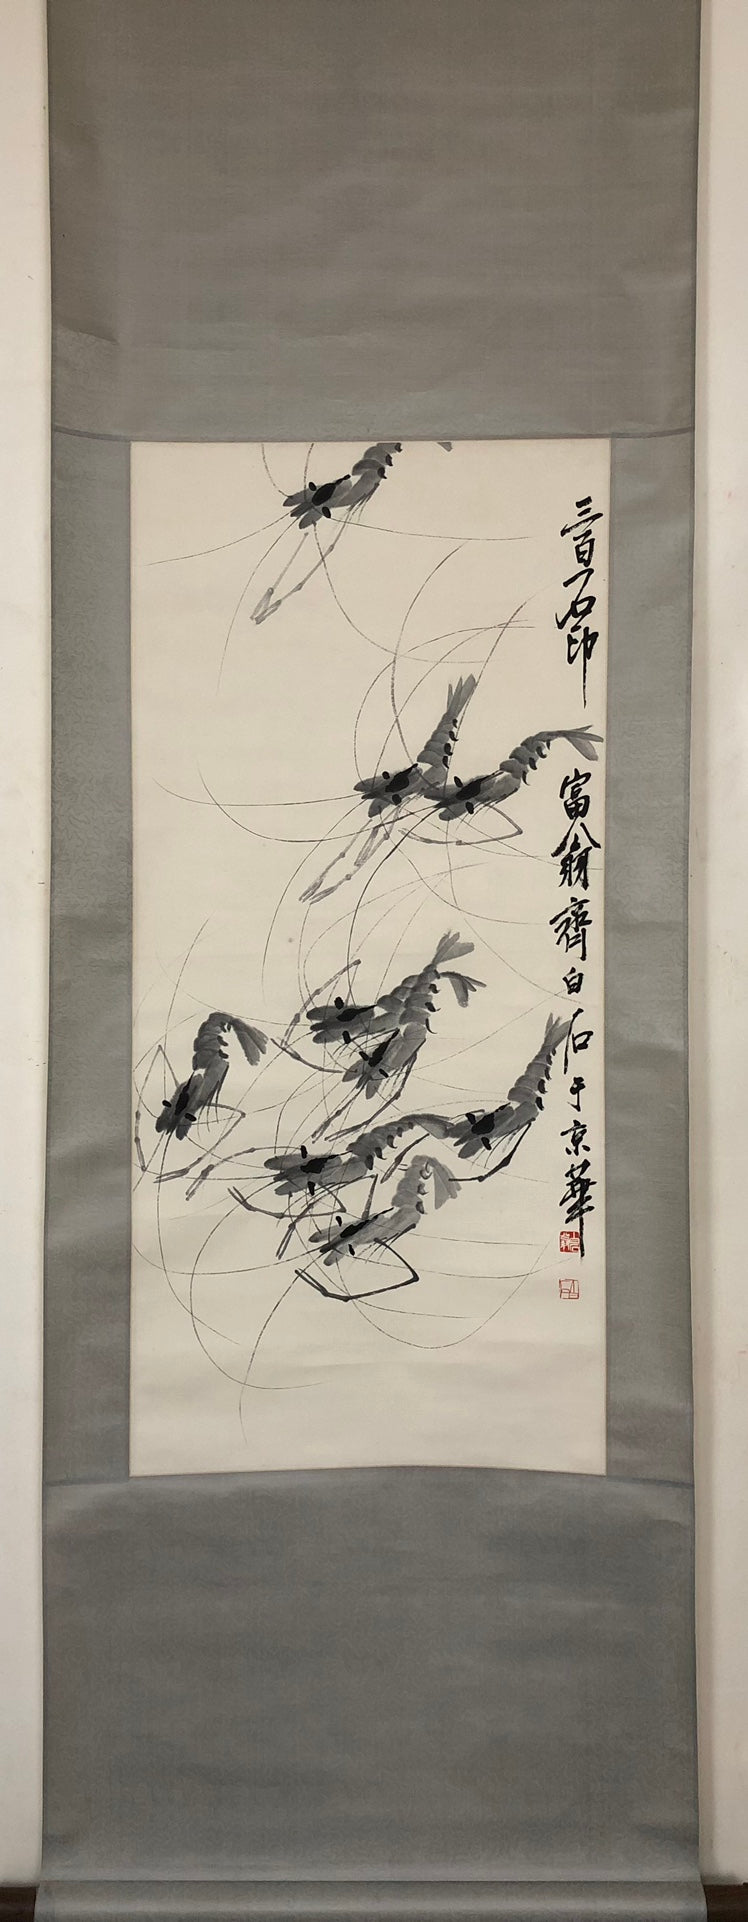 三百石印富翁齊白石于京華